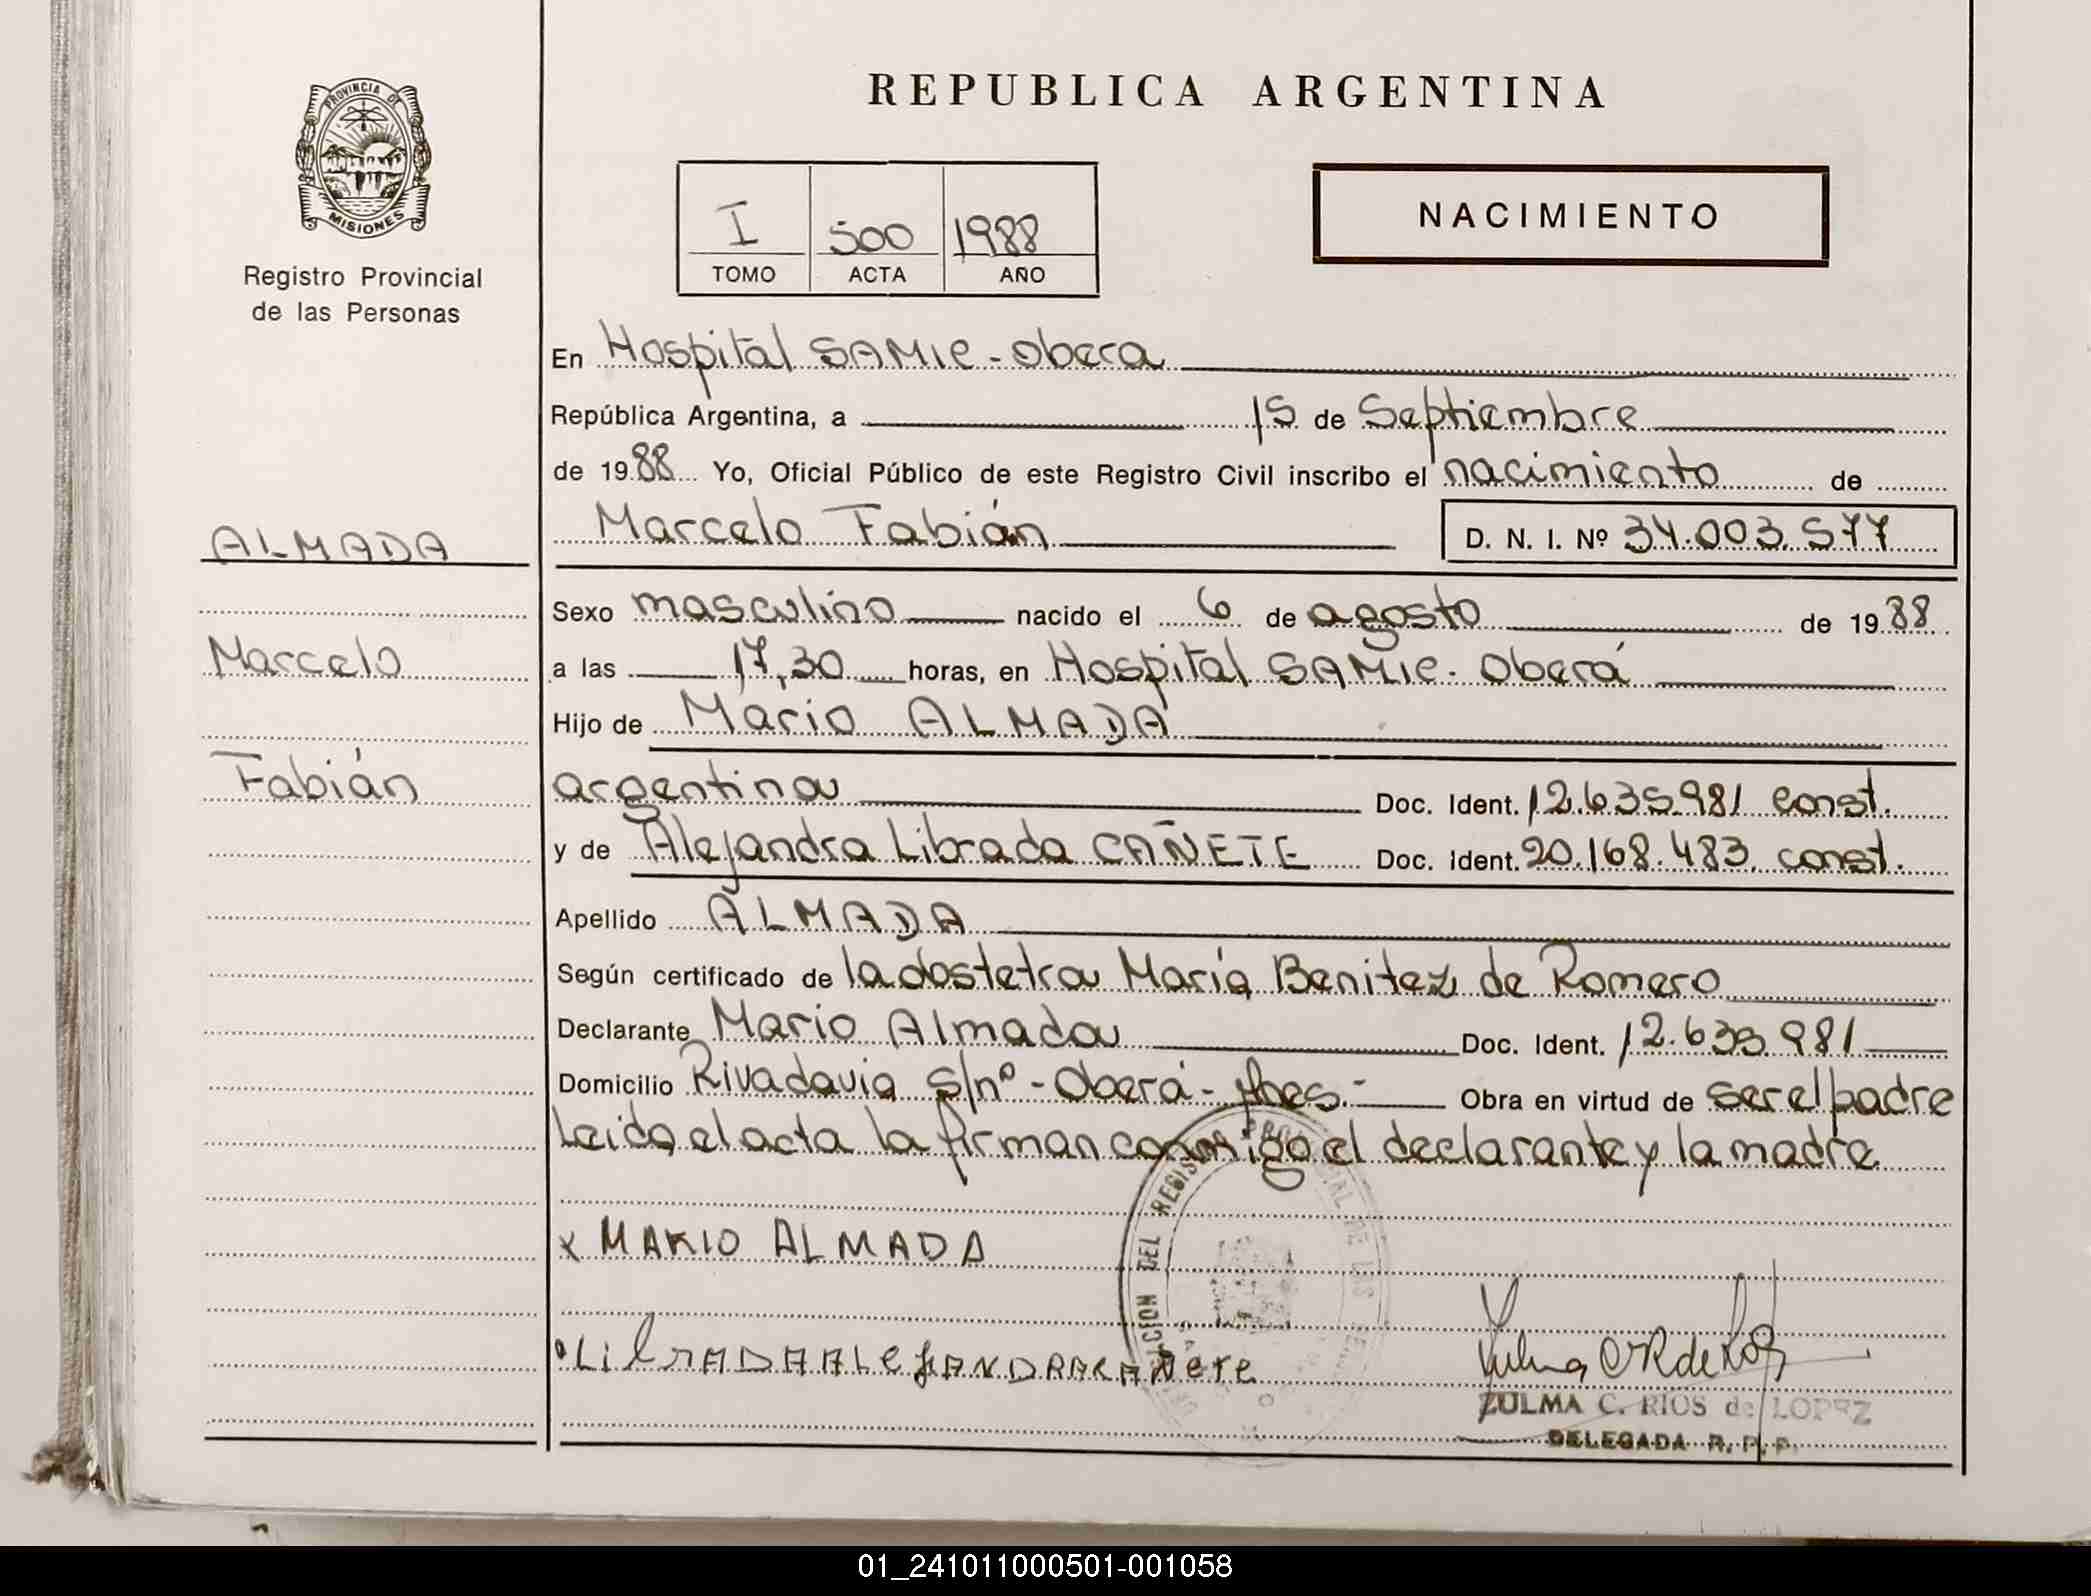 REPUBLICA ARGENTINA
PROVINCIA DE
MISIONES
Registro Provincial
de las Personas
I 500 1988
TOMO ACTA AÑO
NACIMIENTO
En Hospital SAMIC - Obera
República Argentina, a 15 de Septiembre
de 1988 Yo, Oficial Público de este Registro Civil inscribo el nacimiento de
ALMADA
Marcelo Fabián D. N. I. Nº 34.003.577
Sexo masculino nacido el 6 de agosto de 1988
Marcelo
a las 17,30 horas, en Hospital SAMIC - Oberá
Hijo de Mario ALMADA
Fabián
argentina Doc. Ident. 12.635.981 const.
y de Alejandra Librada CAÑETE Doc. Ident. 20.168.483. const.
Apellido ALMADA
Según certificado de la obstetra María Benitez de Romero
Declarante Mario Almada Doc. Ident. 12.635.981
Domicilio Rivadavia s/nº - Oberá - Mnes.- Obra en virtud de ser el padre
Leida el acta la firman conmigo el declarante y la madre
x MARIO ALMADA
LibrADA ALEJANDRA CAÑETE
ZULMA C. RIOS de LOPEZ
DELEGADA R. P. P.
01_241011000501-001058